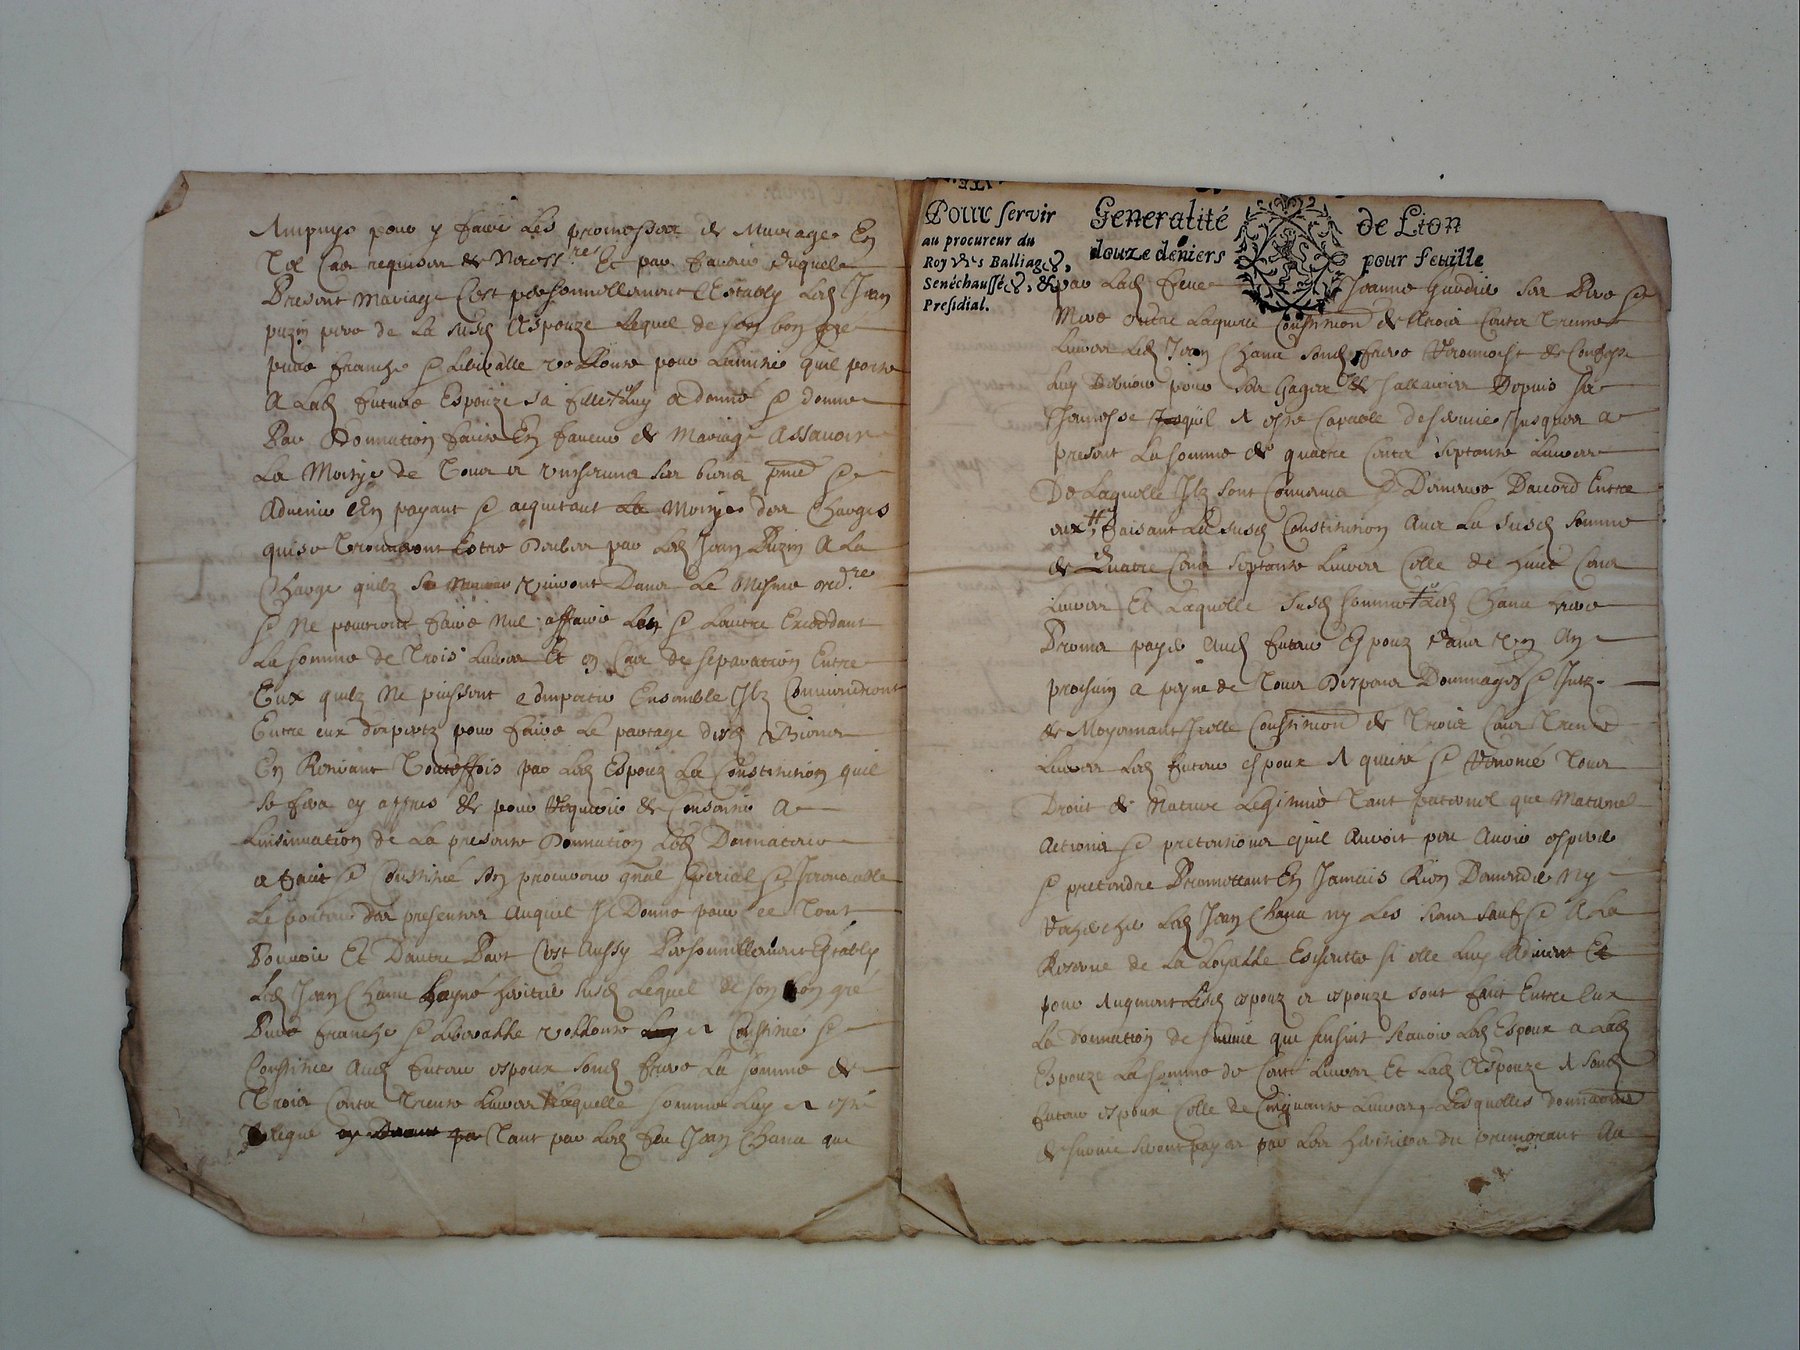 pour y faire Les promesses de Mariage En
Tel Cas requises & Et par faueur duquel
Present Mariage C'est personnellement Estably Led Jean
puzin pere de La susd Espouze Lequel de son bon gre
pure franche & Liberalle vollonte pour Lamitie quil porte
A Lad future Espouze sa fille Luy a donné & donne
Par Donnation faite En faueur de Mariage Assauoir
La Moitye de Tous et vnschacuns ses biens &
Aduenir En payant & acquitant La Moitye des Charges
quise Trouueront Estre Deubes par Led Jean Puzin A La
Charge quilz viuront Dans Le Mesme ord.re
& Ne pourront faire Nul affaire Lon & Lautre Exceddant
La somme de Trois Liures Et en Cas de separation Entre
Eux quilz Ne puissent Ensemble Ilz Conuiendront
Entre eux dexpertz pour faire Le partage desd Biens
En Reniant Touteffois par Led Espoux La Constitution quil
se fera cy appres & pour Requerir & Consentir A
Linsinuation de La presente Donnation Led Donnateur
a fait & Constitué son procureur gnal special & Irreuocable
Le porteur des presentes Auquel Il Donne pour ce Tout
Pouuoir Et Dautre Part C'est Aussy Personnellement Estably
Led Jean Chana heritier susd Lequel de son bon gré
Pure franche & Liberalle vollonte a Constitué &
Constitue Aud futeur espoux sond frere La somme de
Trois Centz Trente Liures Laquelle somme Luy a esté
Leguė Tant par Led feu Jean Chana que
Pour servir
au procureur du
Roy des Balliages,
Senéchaussées, &
Presidial.
Generalité de Lion
douze deniers pour feuille
par Lad feue Jeanne ses Pere &
Mere outre Laquelle Constitution de Trois Centz Trente
Liures Led Jean Chana sond frere
Luy Debuoir pour ses gages & sallaires Depuis sa
Jeunesse quil A esté Capable de seruir Jusques a
present La somme de quatre Centz Septante Liures
De Laquelle Ilz sont Conuenus & Demeuré Daccord Entre
eux Faisant La susd Constitution Auec La susd somme
de Quatre Centz Septante Liures Celle de huict Centz
Liures Et Laquelle susd somme Led Chana frere
Promet payer Aud futeur Espoux dans vn An
prochain a peyne de Tous Despens Dommages & Intz.
& Moyennant Constitution de Trois Centz Trente
Liures Led futeur espoux A quitté & Renoncé Tous
Droit de Nature Legitime Tant paternel que Maternel
Actions & pretentions quil Auoit peu Auoir esperer
& pretendre Promettant En Jamais Rien Demander Ny
Rechercher Led Jean Chana ny Les siens sauf & A La
Reserue de La Loyalle Escheutte si elle Luy Aduient Et
pour Augment Lesd espoux et espouze sont fait Entre Eux
La donnation de suruie que sensuit Scauoir Led Espoux a Lad
Espouze La somme de Cent Liures Et Lad Espouze A sond
futeur espoux Celle de Cinquante Liures Lesquelles donnations
de suruie seront payes par Les heritiers du premourant Au